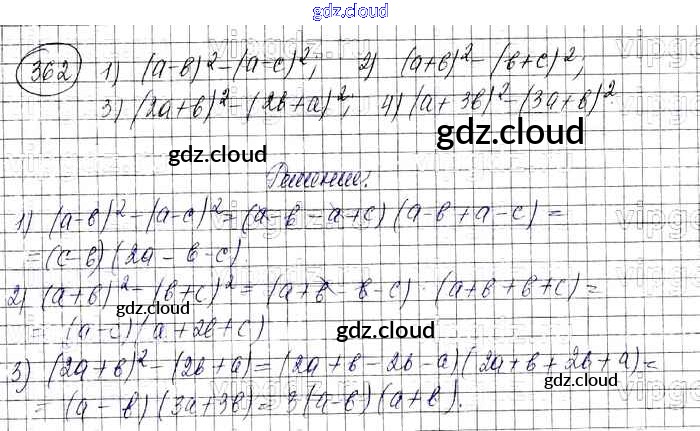 gdz.cloud
362 1) (a-в)² - (a-c)²; 2) (a+в)² - (в+c)²;
3) (2a+в)² - (2в+a)²; 4) (a+3в)² - (3a+в)²
gdz.cloud
gdz.cloud
Решение.
1) (a-в)² - (a-c)² = (a-в-a+c)(a-в+a-c) =
= (c-в)(2a-в-c)
2) (a+в)² - (в+c)² = (a+в-в-c)·(a+в+в+c) =
gdz.cloud
= (a-c)(a+2в+c)
gdz.cloud
3) (2a+в)² - (2в+a) = (2a+в-2в-a)(2a+в+2в+a) =
gdz.cloud
= (a-в)(3a+3в) = 3(a-в)(a+в).
gdz.cloud